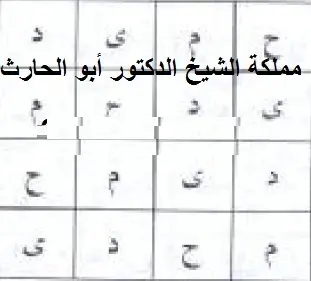 ح م ى د
مملكة الشيخ الدكتور أبو الحارث
ى د ح م
د ى م ح
م ح د ى